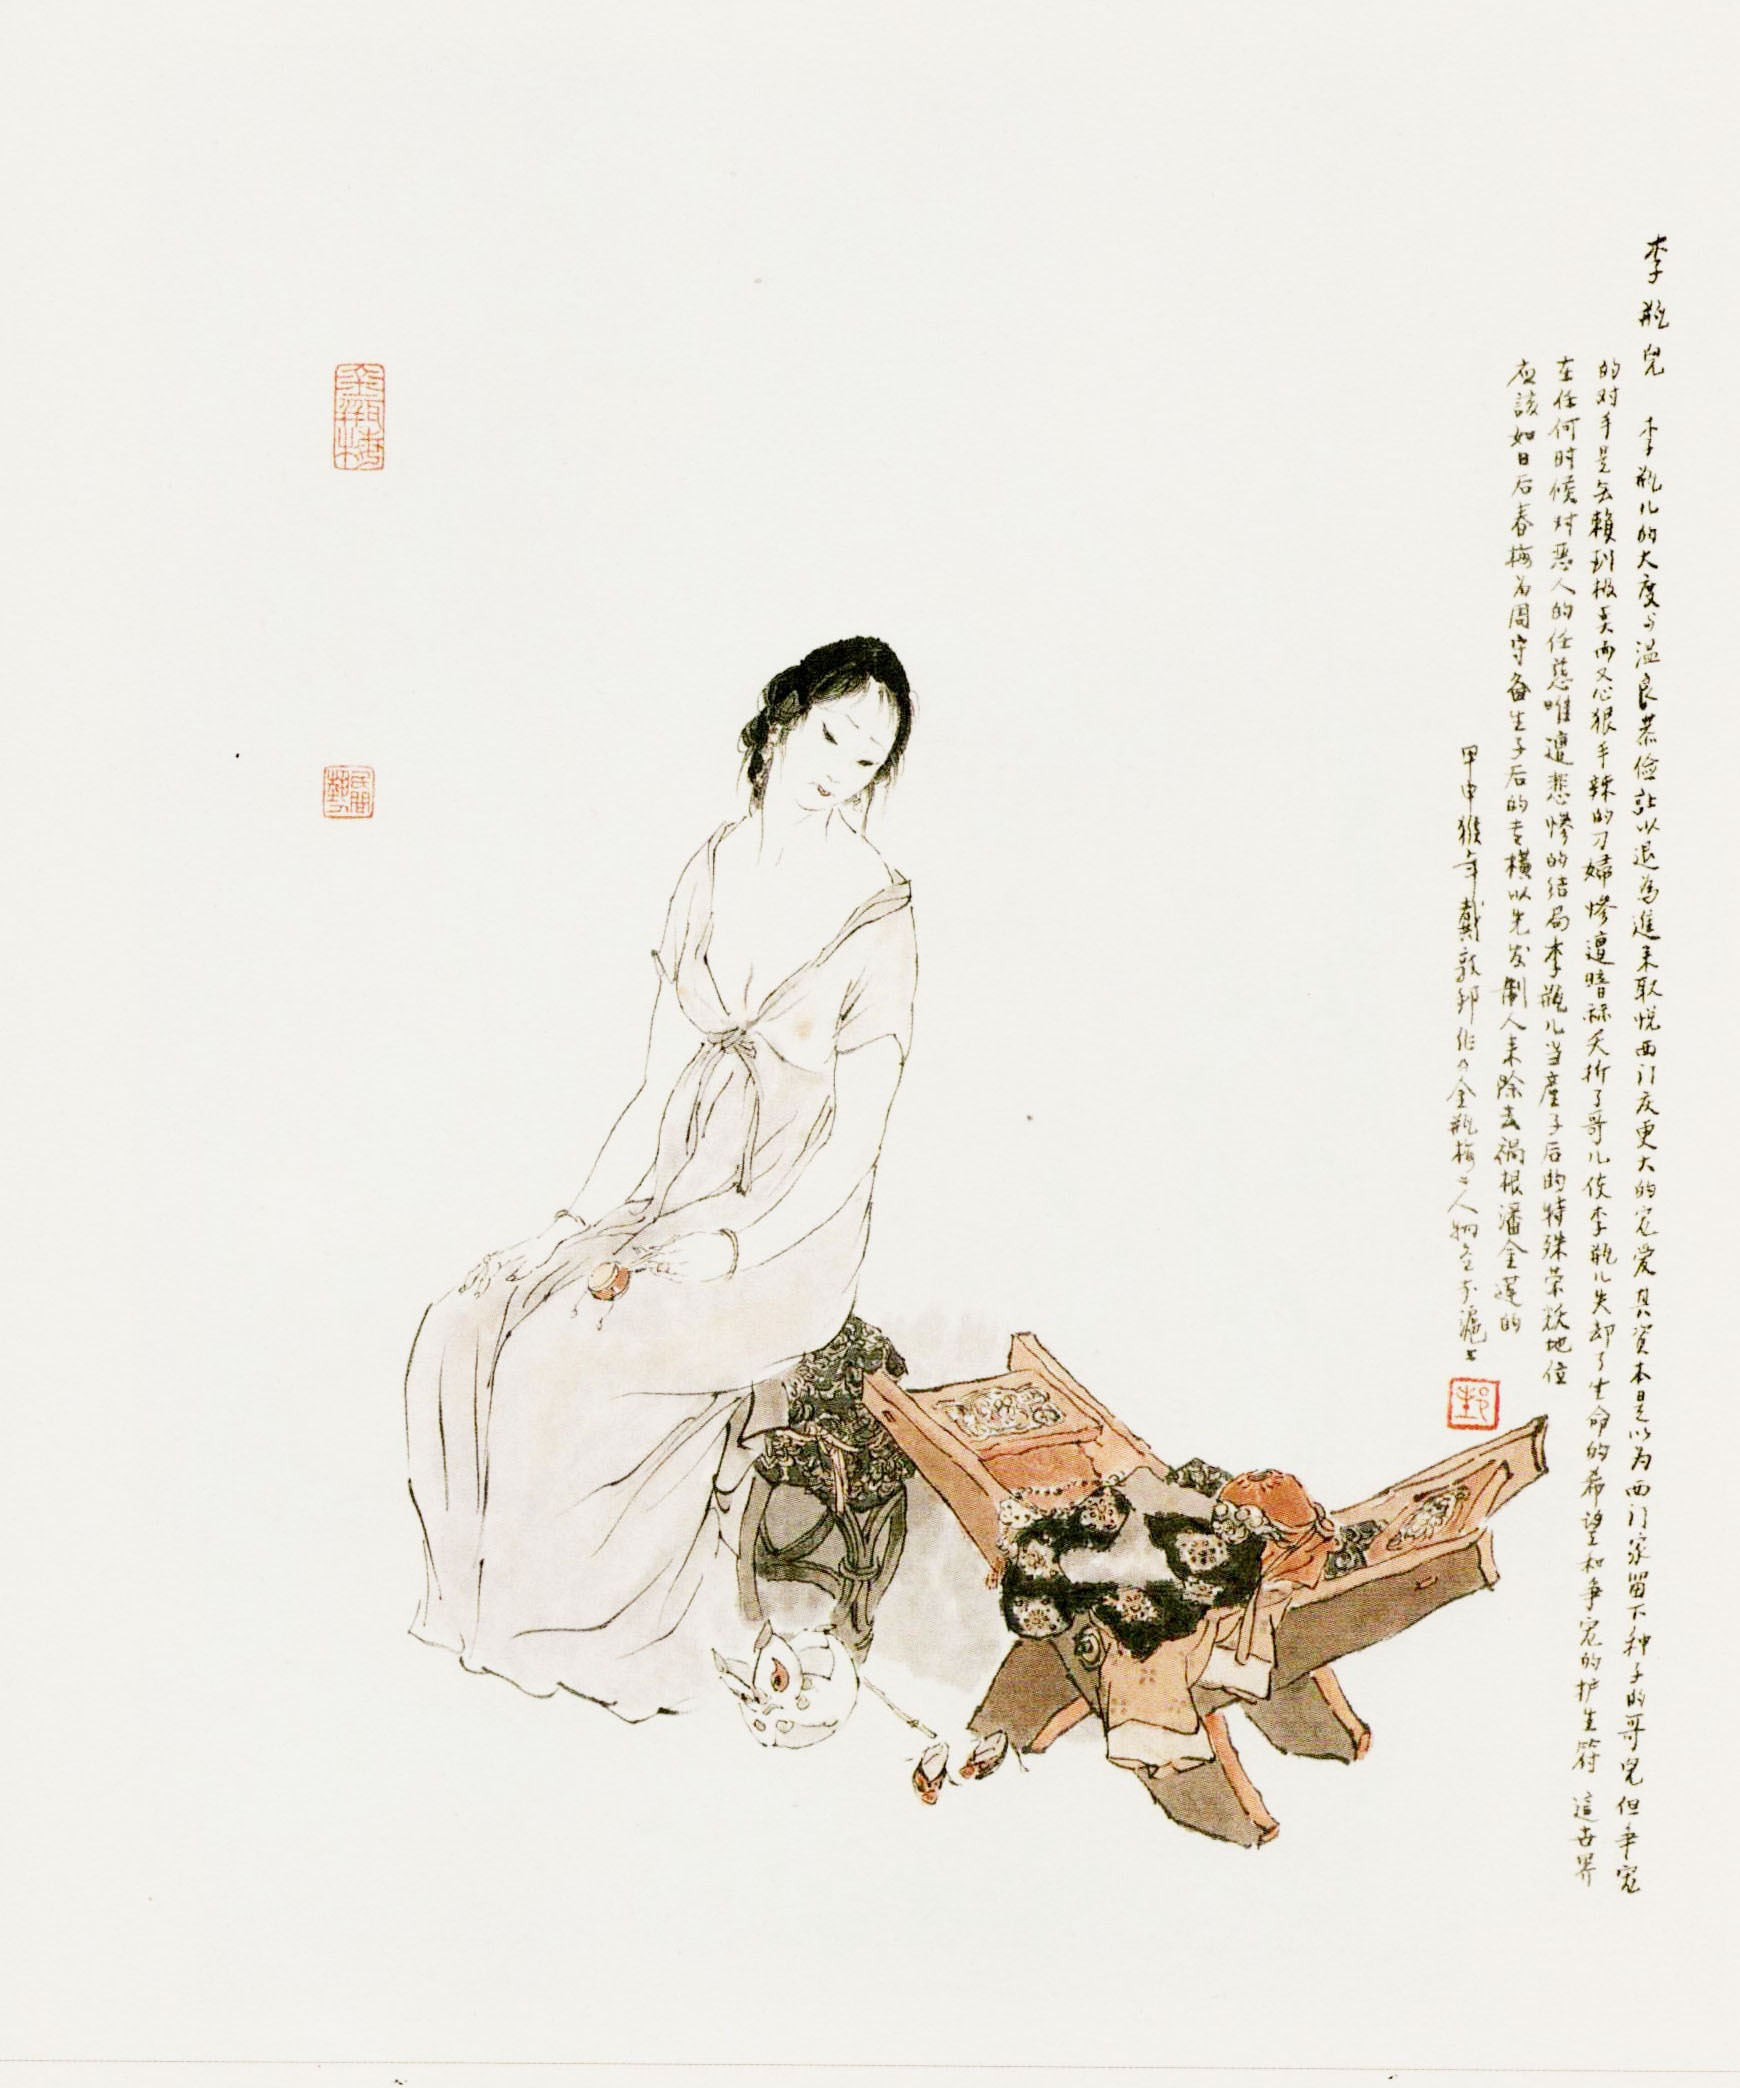 李瓶兒 李瓶儿的大度与温良恭俭让以退為進来取悦西门庆更大的宠爱其资本是以为西门家留下种子的哥兒但争宠
的对手是无赖到极矣而又心狠手辣的刁婦惨遭暗祘夭折了哥儿使李瓶儿失却了生命的希望和争宠的护生符 這世界
在任何时候对恶人的任慈唯遭悲惨的结局李瓶儿当産子后的特殊荣耀地位
应該如日后春梅为周守备生子后的专横以先发制人来除去祸根潘金莲的
甲申猴年戴敦邦作《金瓶梅》人物全于滬上
邦
金瓶梅
民間藝